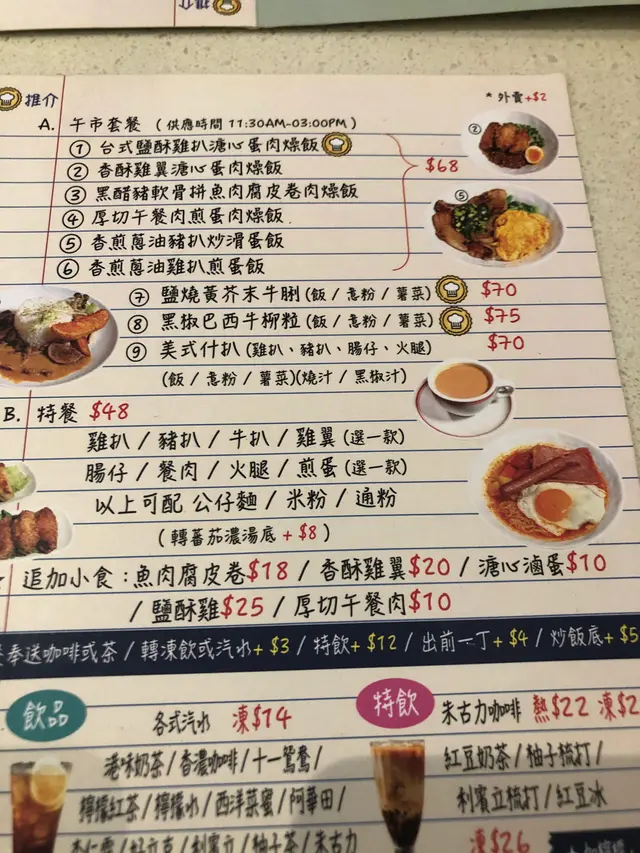 推介
推介
* 外賣+$2
A. 午市套餐 (供應時間 11:30AM-03:00PM)
① 台式鹽酥雞扒溏心蛋肉燥飯
② 香酥雞翼溏心蛋肉燥飯
③ 黑醋豬軟骨拼魚肉腐皮卷肉燥飯
④ 厚切午餐肉煎蛋肉燥飯
⑤ 香煎蔥油豬扒炒滑蛋飯
⑥ 香煎蔥油雞扒煎蛋飯
$68
②
⑤
⑦ 鹽燒黃芥末牛脷(飯 / 意粉 / 薯菜) $70
⑧ 黑椒巴西牛柳粒(飯 / 意粉 / 薯菜) $75
⑨ 美式什扒 (雞扒、豬扒、腸仔、火腿) $70
(飯 / 意粉 / 薯菜)(燒汁 / 黑椒汁)
B. 特餐 $48
雞扒 / 豬扒 / 牛扒 / 雞翼 (選一款)
腸仔 / 餐肉 / 火腿 / 煎蛋 (選一款)
以上可配 公仔麵 / 米粉 / 通粉
(轉蕃茄濃湯底 + $8)
追加小食：魚肉腐皮卷$18 / 香酥雞翼$20 / 溏心滷蛋$10
/ 鹽酥雞$25 / 厚切午餐肉$10
奉送咖啡或茶 / 轉凍飲或汽水+ $3 / 特飲+ $12 / 出前一丁+ $4 / 炒飯底+ $5
飲品 各式汽水 凍$14
港味奶茶/香濃咖啡/十一鴛鴦/
檸檬紅茶/檸檬水/西洋菜蜜/阿華田/
杏仁霜/好立克/利賓立/柚子茶/朱古力
特飲 朱古力咖啡 熱$22 凍$2
紅豆奶茶/柚子梳打/
利賓立梳打/紅豆冰
凍$26